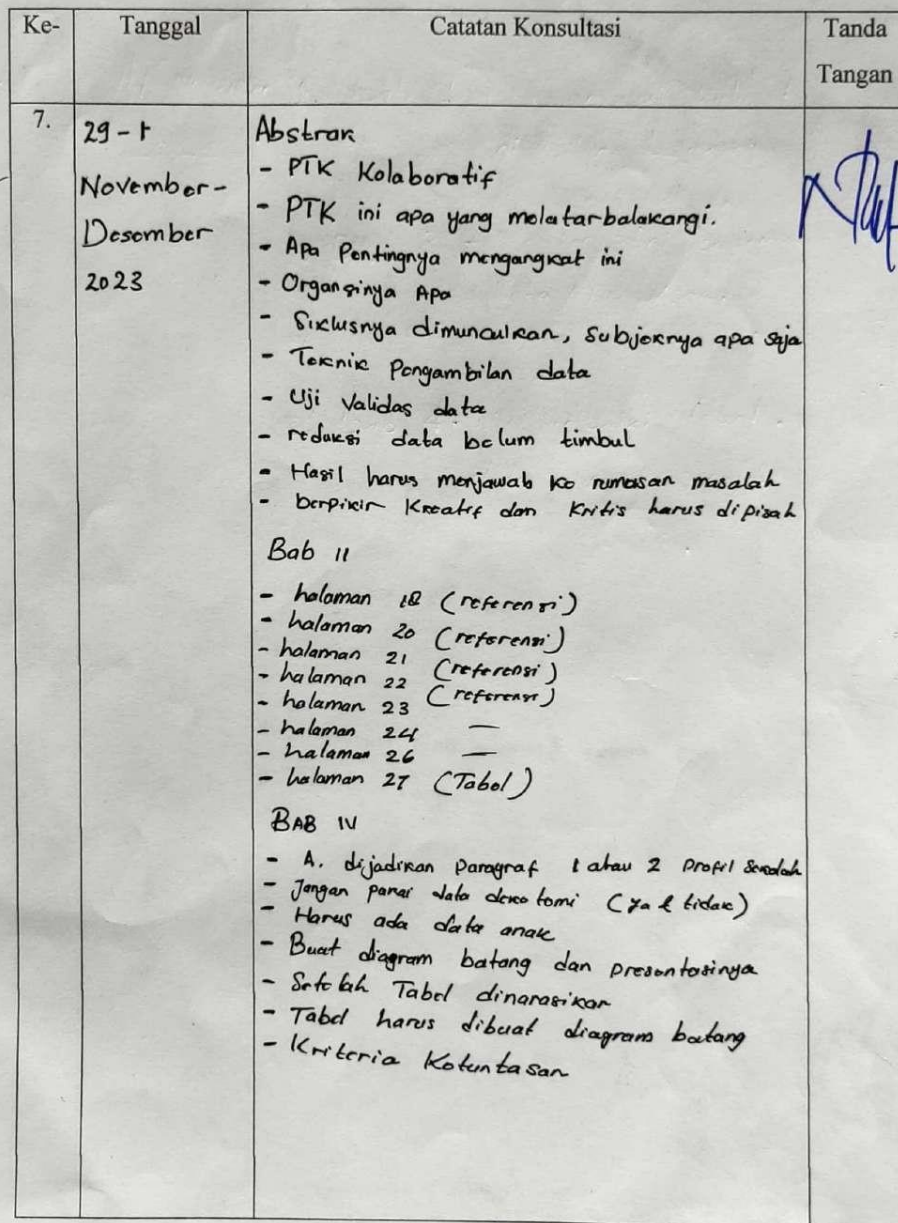 Ke-
Tanggal
Catatan Konsultasi
Tanda
Tangan
7.
29 - 1
November -
Desember
2023
Abstrak
- PTK Kolaboratif
- PTK ini apa yang melatarbelakangi.
- Apa Pentingnya mengangkat ini
- Organsinya Apa
- Siklusnya dimunculkan, Subjeknya apa saja
- Teknik Pengambilan data
- Uji Validas data
- reduksi data belum timbul
- Hasil harus menjawab ke rumusan masalah
- berpikir Kreatif dan Kritis harus dipisah
Bab II
- halaman 18 (referensi)
- halaman 20 (referensi)
- halaman 21 (referensi)
- halaman 22 (referensi)
- halaman 23
- halaman 24 —
- halaman 26 —
- halaman 27 (Tabel)
BAB IV
- A. dijadikan Paragraf 1 atau 2 Profil Sekolah
- Jangan pakai data dekotomi (ya & tidak)
- Harus ada data anak
- Buat diagram batang dan presentasinya
- Setelah Tabel dinarasikan
- Tabel harus dibuat diagram batang
- Kriteria Ketuntasan